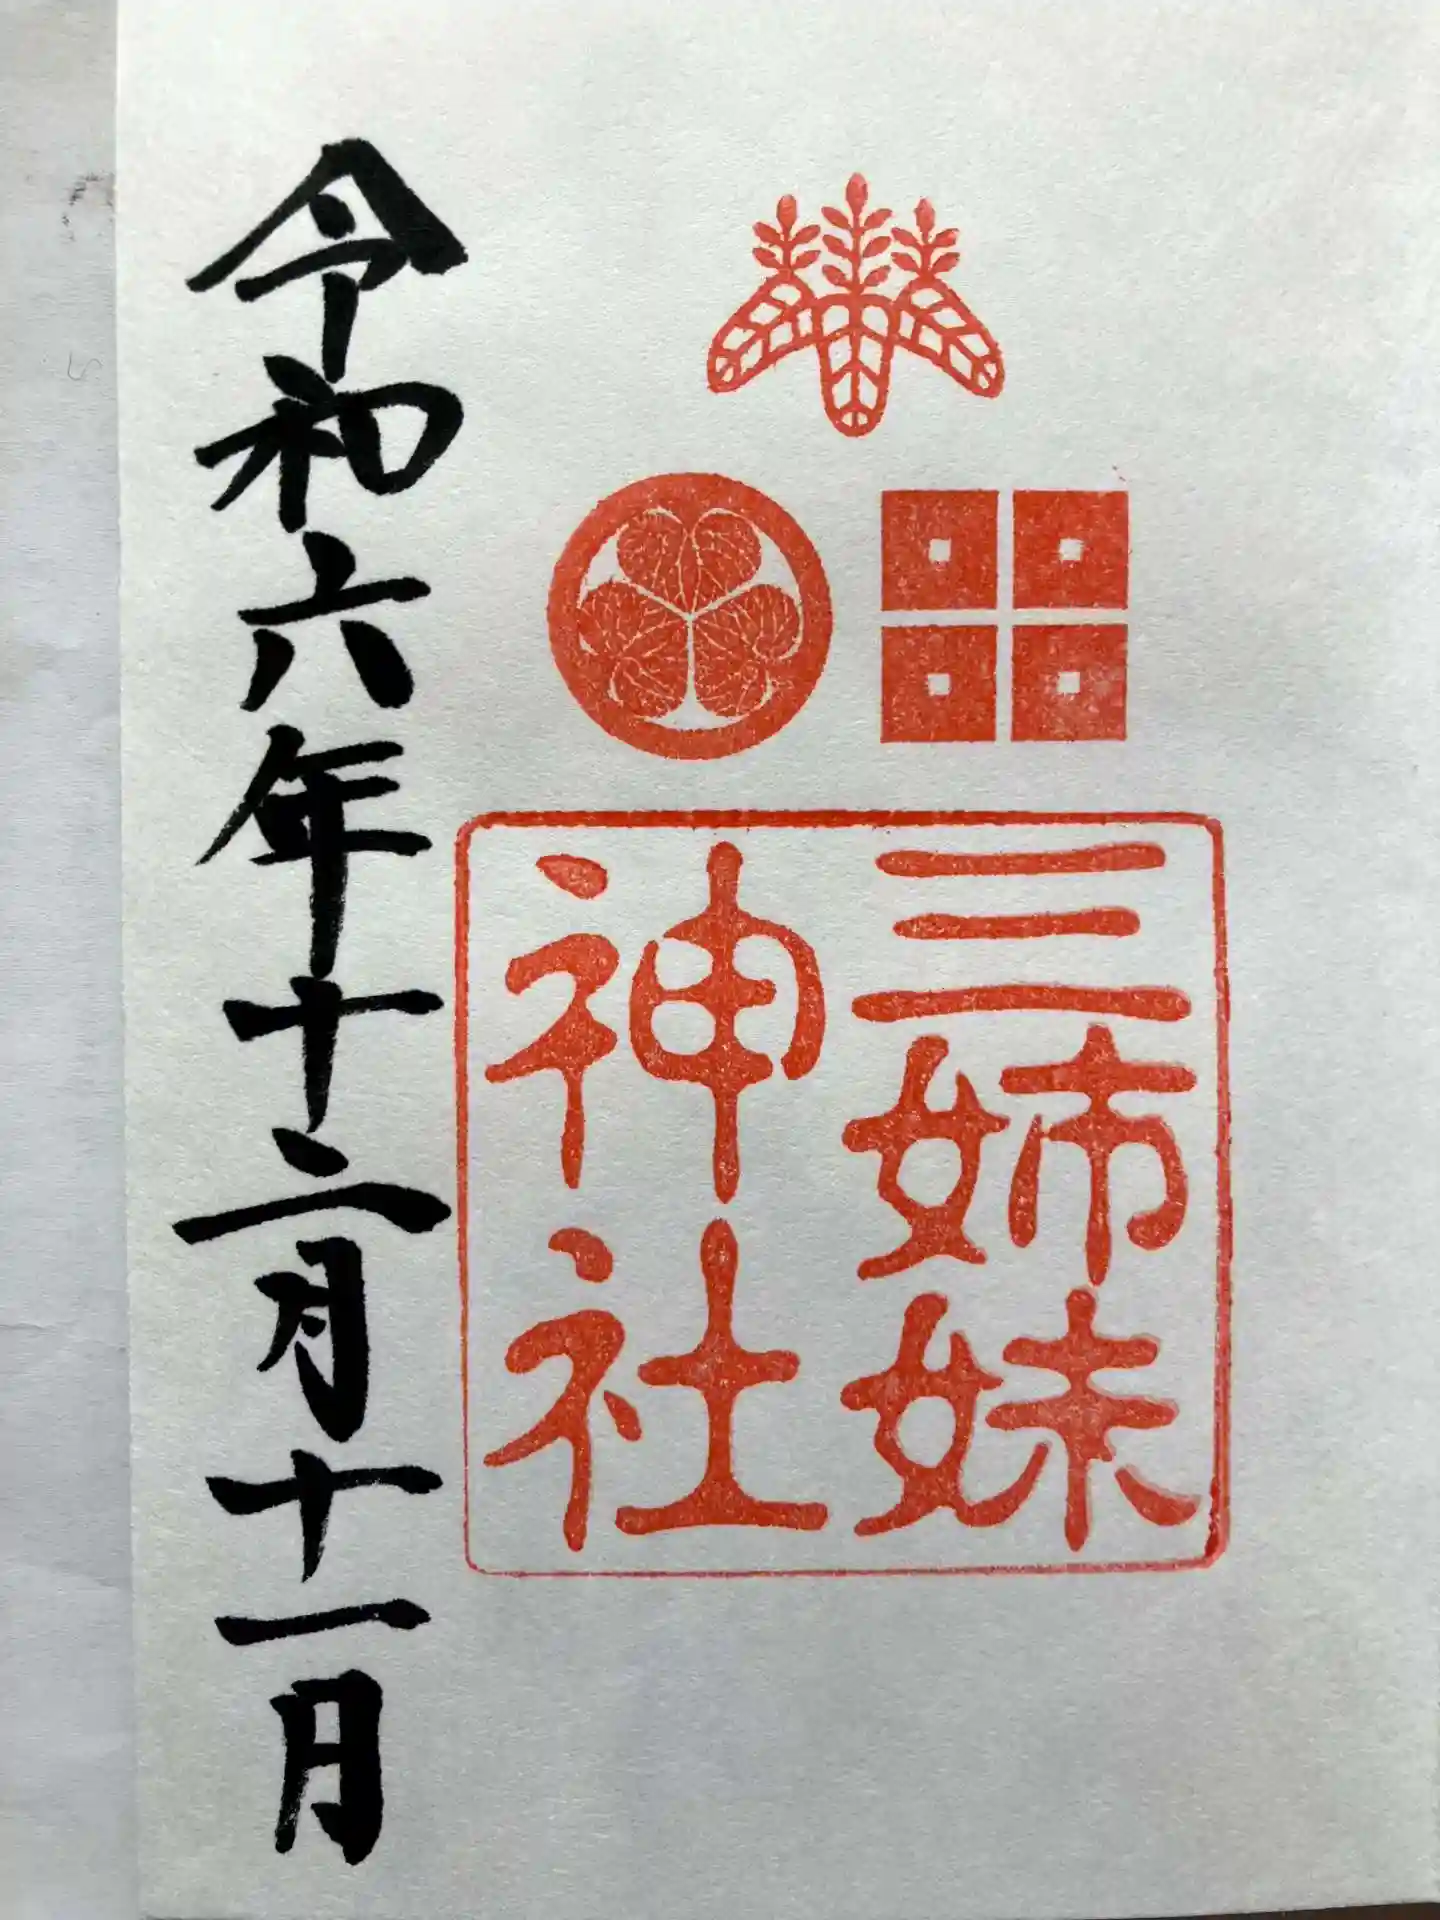 三姉妹
神社
令和六年十二月十一日